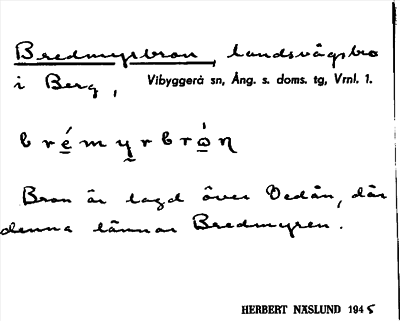 Bredmyrbron, landsvägsbro
i Berg, Vibyggerå sn, Ång. s. doms. tg, Vrnl. 1.
bré̲my̰rbrò̲ŋ
Bron är lagd över Dedån, där
denna lämnar Bredmyren.
HERBERT NÄSLUND 1945